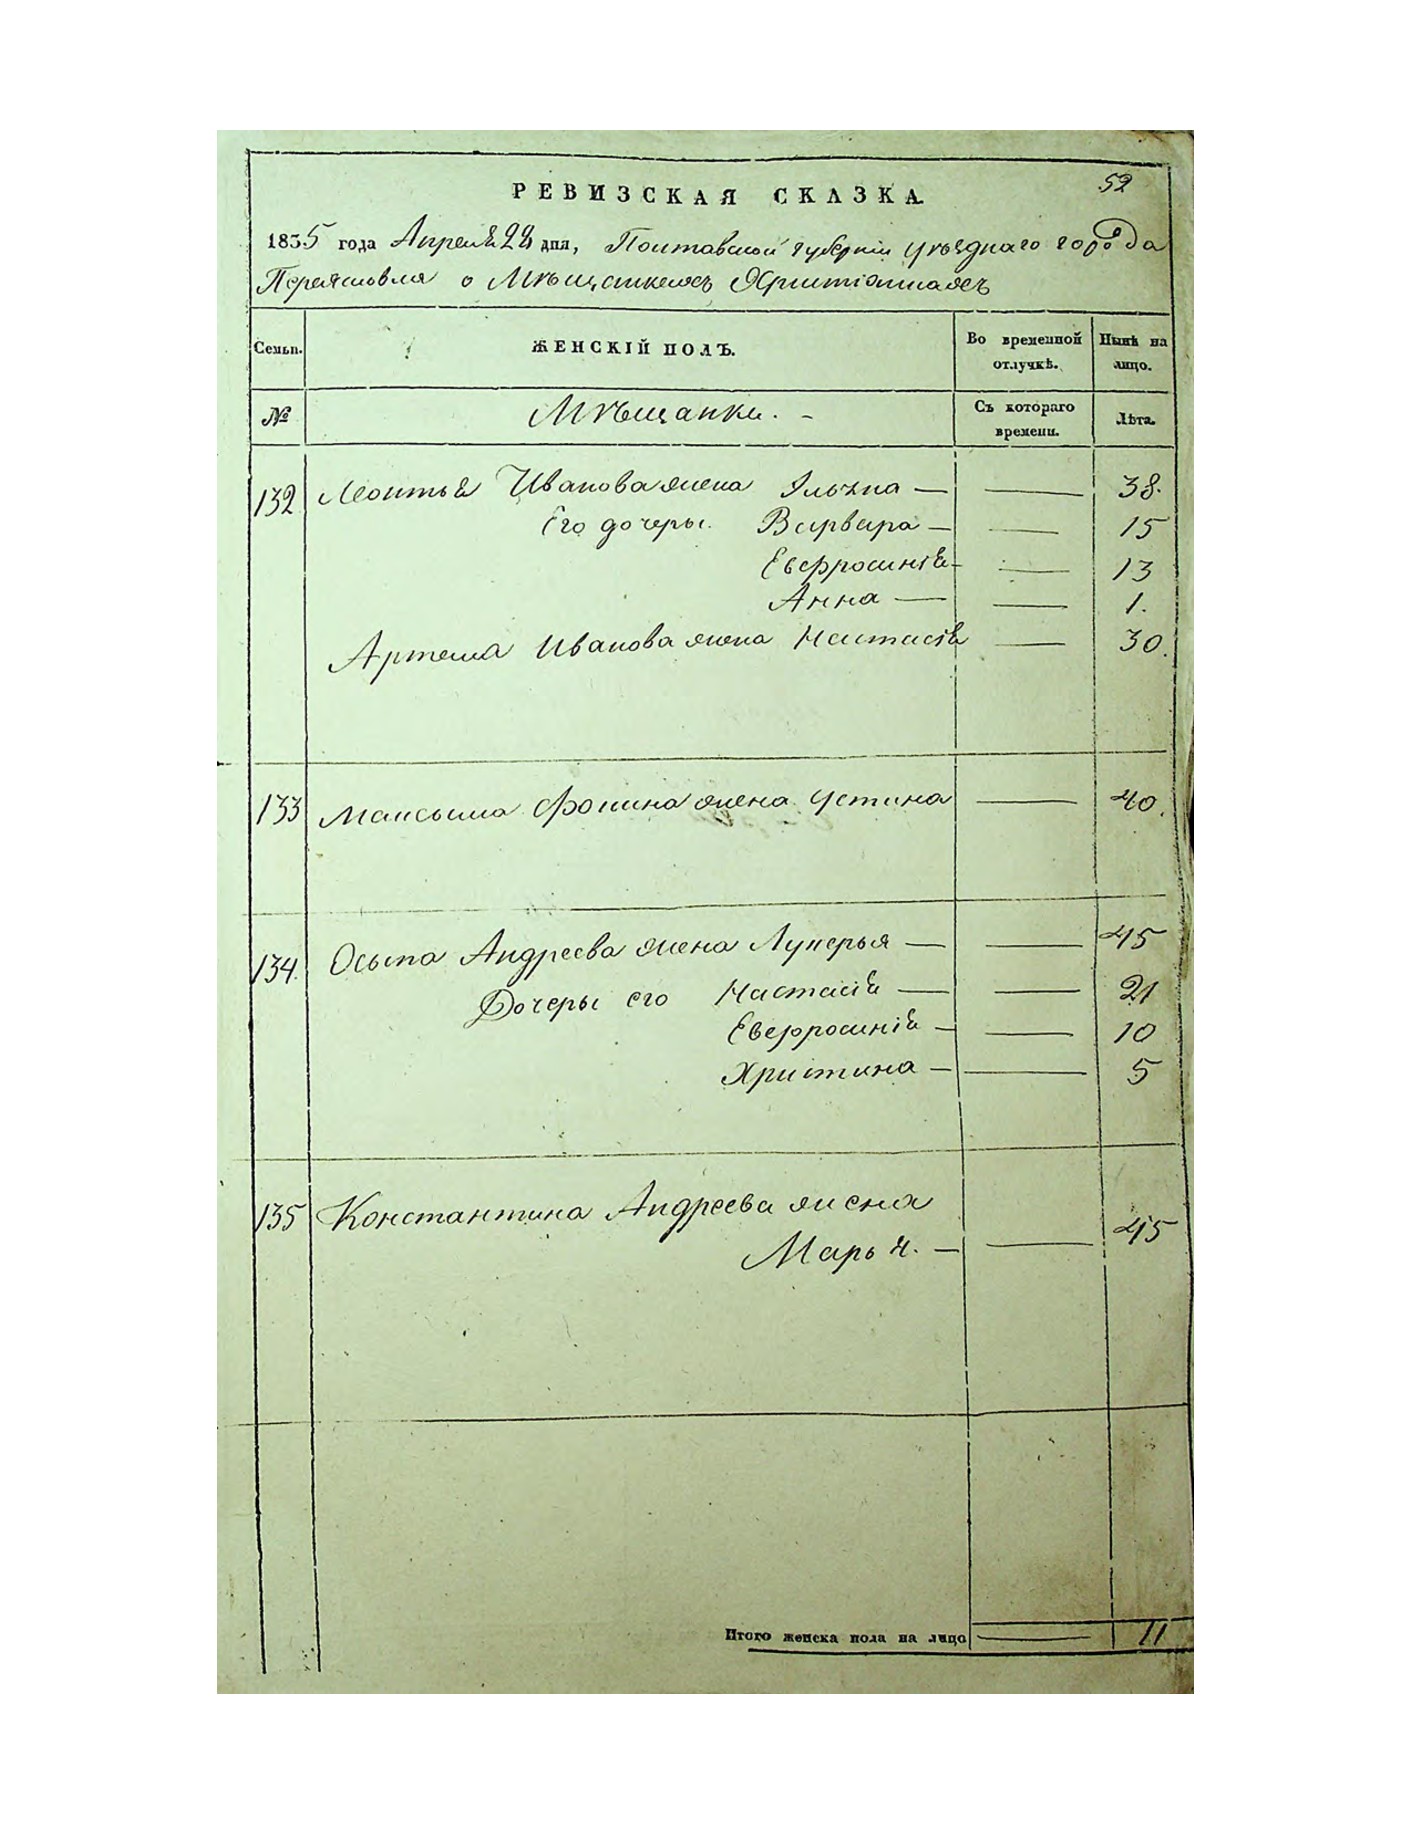 52
РЕВИЗСКАЯ СКАЗКА.
1835 года Апреля 22 дня, Полтавской губерніи уѣзднаго города
Переяславля о Мѣщанкахъ Христіянкахъ
Семьи. ЖЕНСКІЙ ПОЛЪ. Во временной отлучкѣ. Нынѣ на лицо.
№ Мѣщанки. – Съ котораго времени. Лѣта.
132 Леонтья Иванова жена — — 38.
Его дочеры. Варвара — — 15
Евфросинія — — 13
Анна — — 1.
Артема Иванова жена Настасія — 30.
133 Максыма Фомина жена Устина — 40.
134 Осыпа Андреева жена Лукерья — — 45
Дочеры его Настасія — — 21
Евфросинія — — 10
Христина — — 5
135 Константина Андреева жена
Марья. — — 45
Итого женска пола на лицо — 11